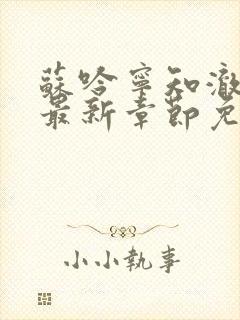 蘇哈寧知澈
最新章節免
小小執事